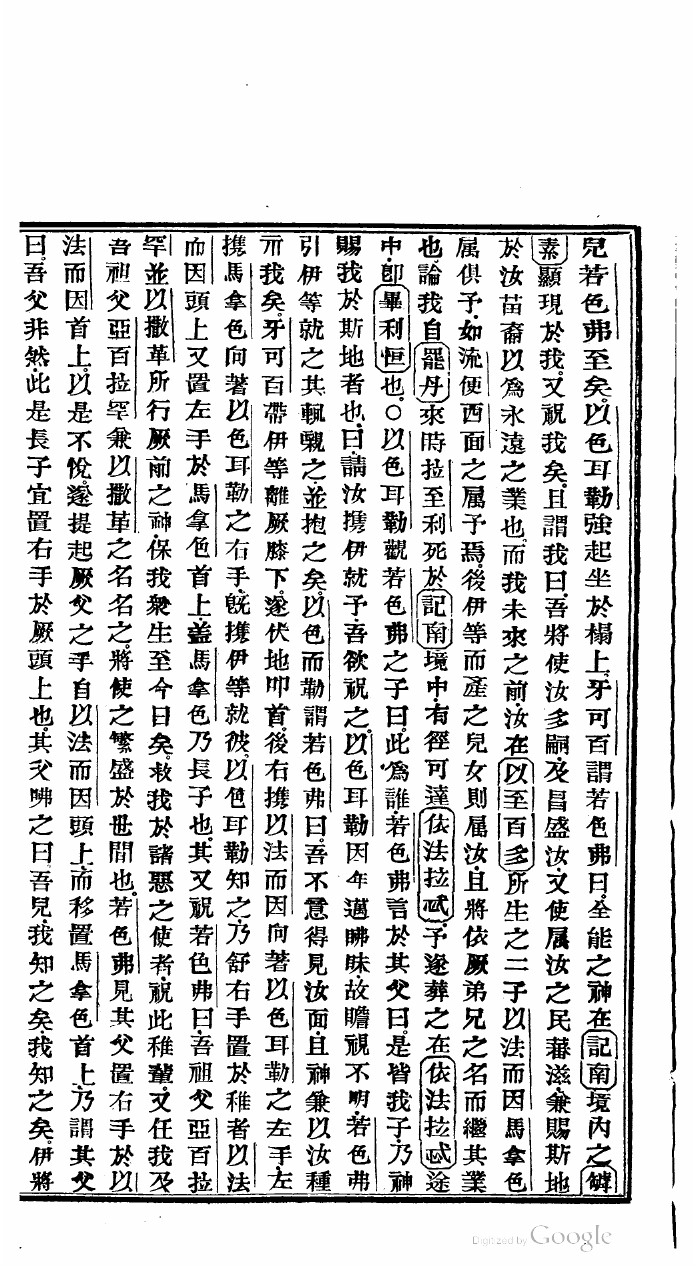 兒若色弗至矣以色耳勒強起坐於榻上牙可百謂若色弗曰全能之神在記南境內之鱗
素顯現於我又祝我矣且謂我曰吾將使汝多嗣及昌盛汝又使属汝之民蕃滋兼賜斯地
於汝苗裔以為永遠之業也而我未來之前汝在以至百多所生之二子以法而因馬拿色
属俱予如流便西面之属予焉後伊等而產之兒女則屬汝且將依厥弟兄之名而繼其業
也論我自罷丹來時拉至利死於記南境中有徑可達依法拉忒予遂葬之在依法拉忒途
中卽畢利恒也○以色耳勒觀若色弗之子曰此為誰若色弗言於其父曰是皆我子乃神
賜我於斯地者也曰請汝攜伊就予吾欲祝之以色耳勒因年邁眵昧故瞻視不明若色弗
引伊等就之其輒覯之並抱之矣以色而勒謂若色弗曰吾不意得見汝面且神兼以汝種
示我矣牙可百帶伊等離厥膝下遂伏地叩首後右攜以法而因向著以色耳勒之左手左
攜馬拿色向著以色耳勒之右手旣攜伊等就彼以色耳勒知之乃舒右手置於稚者以法
而因頭上又置左手於馬拿色首上蓋馬拿色乃長子也其又祝若色弗曰吾祖父亞百拉
罕並以撒革所行厥前之神保我衆生至今日矣救我於諸惡之使者祝此稚輩又任我及
吾祖父亞百拉罕兼以撒革之名名之將使之繁盛於世間也若色弗見其父置右手於以
法而因首上以是不悅遂提起厥父之手自以法而因頭上而移置馬拿色首上乃謂其父
曰吾父非然此是長子宜置右手於厥頭上也其父咈之曰吾兒我知之矣我知之矣伊將
Digitized by Google